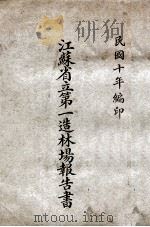 民國十年編印
江蘇省立第一造林場報告書
mtoou.info
dushu.com